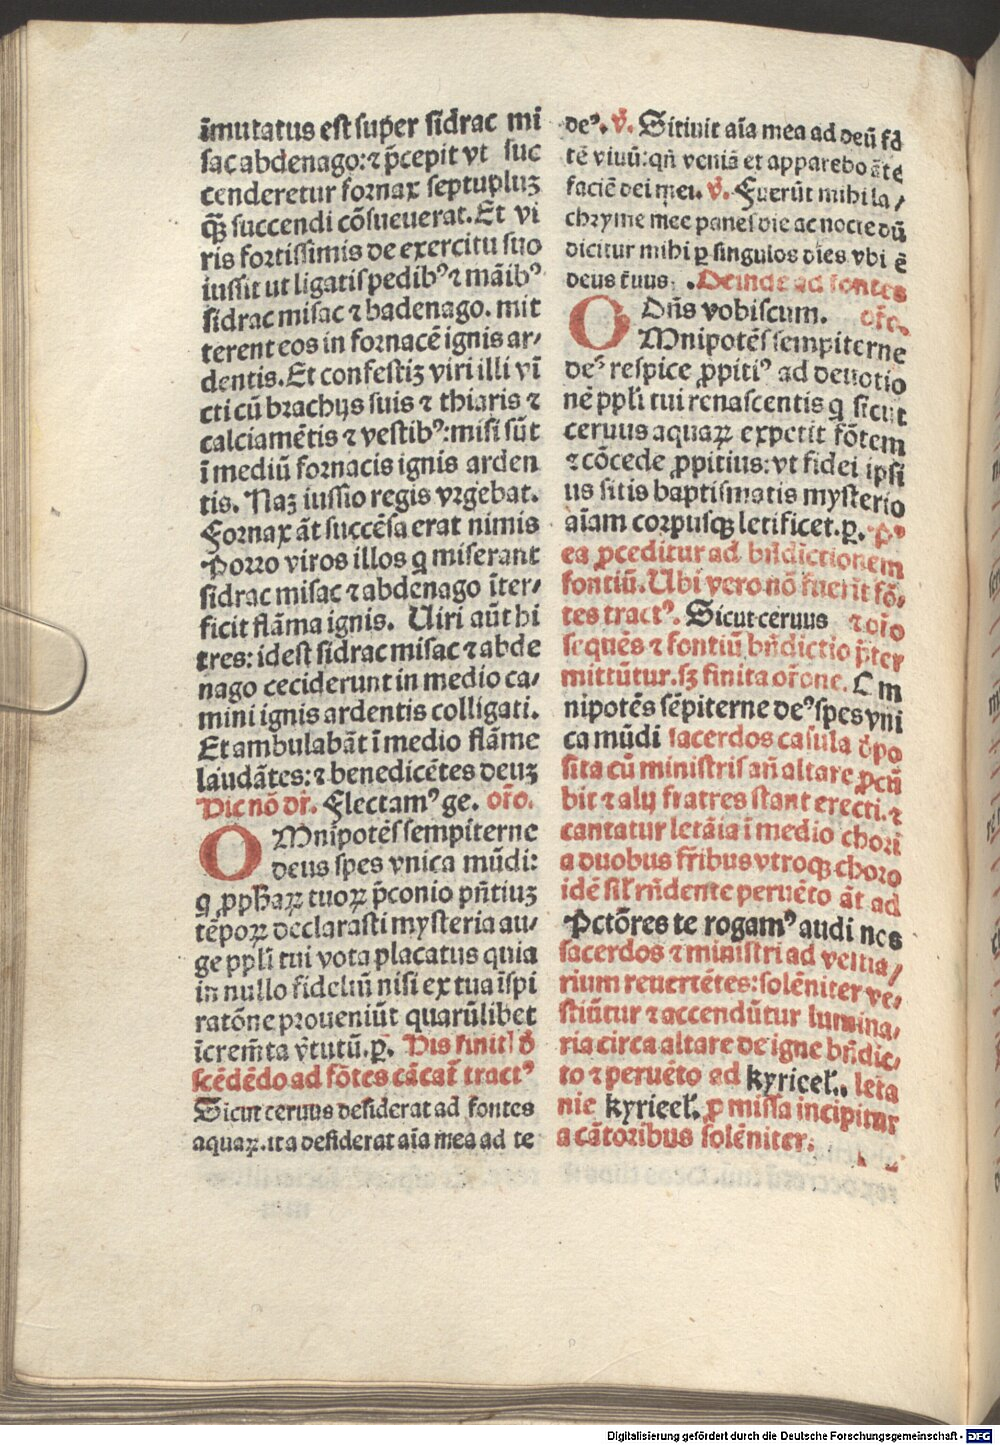 īmutatus est super sidrac mi
sac abdenago: ⁊ p̄cepit vt suc
cenderetur fornax septupluʒ
ꝙ̄ succendi cōsueuerat. Et vi
ris fortissimis de exercitu suo
iussit ut ligatis pedibꝰ ⁊ māibꝰ
sidrac misac ⁊ badenago. mit
terent eos in fornacē ignis ar⸗
dentis. Et confestiʒ viri illi vī
cti cū brachijs suis ⁊ thiaris ⁊
calciamētis ⁊ vestibꝰ: misi sūt
ī mediū fornacis ignis arden
tis. Naʒ iussio regis vrgebat.
Fornax āt succēsa erat nimis
Porro viros illos q̄ miserant
sidrac misac ⁊ abdenago īter⸗
ficit flāma ignis. Uiri aūt hi
tres: idest sidrac misac ⁊ abde
nago ceciderunt in medio ca⸗
mini ignis ardentis colligati.
Et ambulabāt ī medio flāme
laudātes: ⁊ benedicētes deuʒ
Dic nō dr̄. Flectamꝰ ge. or̄o.
OMnipotēs sempiterne
deus spes vnica mūdi:
q ꝓpħaꝝ tuoꝝ p̄conio pn̄tiuʒ
tēpoꝝ declarasti mysteria au⸗
ge ppl̄i tui vota placatus quia
in nullo fideliū nisi ex tua īspi
ratōne proueniūt quarūlibet
īcrem̄ta v̄tutū. ꝑ. His finit̄ dʼ
scēdēdo ad fōtes cācat̄ tractꝰ
Sicut ceruus desiderat ad fontes
aquaꝝ. ita desiderat aīa mea ad te
deꝰ. v̄. Sitiuit aīa mea ad deū fō
tē viuū: qn̄ veniā et apparebo āte
faciē dei mei. v̄. Fuerūt mihi la⸗
chryme mee panes die ac nocte dū
dicitur mihi ꝑ singulos dies vbi ē
deus tuus. Deinde ad fontes
Dn̄s vobiscum. or̄o.
OMnipotēs sempiterne
deꝰ respice ꝓpitiꝰ ad deuotio
nē ppl̄i tui renascentis q̄ sicut
ceruus aquaꝝ expetit fōtem
⁊ cōcede ꝓpitius: vt fidei ipsi
us sitis baptismatis mysterio
aīam corpusqꝫ letificet. ꝑ. Pꝰ
ea ꝓceditur ad bn̄dictionem
fontiū. Ubi vero nō fuerīt fō⸗
tes tractꝰ. Sicut ceruus ⁊ or̄o
sequēs ⁊ fontiū bn̄dictio p̄ter
mittūtur. sʒ finita or̄one. O m
nipotēs sēpiterne deꝰ spes vni
ca mūdi sacerdos casula dʼpo
sita cū ministris an̄ altare ꝓcū
bit ⁊ alij fratres stant erecti. ⁊
cantatur letāia ī medio chori
a duobus fr̄ibus vtroqꝫ choro
idē sil̄ rn̄dente peruēto āt ad
Pctōres te rogamꝰ audi nos
sacerdos ⁊ ministri ad vestia⸗
rium reuertētes: solēniter ve⸗
stiūtur ⁊ accendūtur lumina⸗
ria circa altare de igne bn̄dic⸗
to ⁊ peruēto ad kyrieel̄. leta
nie kyrieel̄. ꝓ missa incipitur
a cātoribus solēniter:
Digitalisierung gefördert durch die Deutsche Forschungsgemeinschaft - DFG